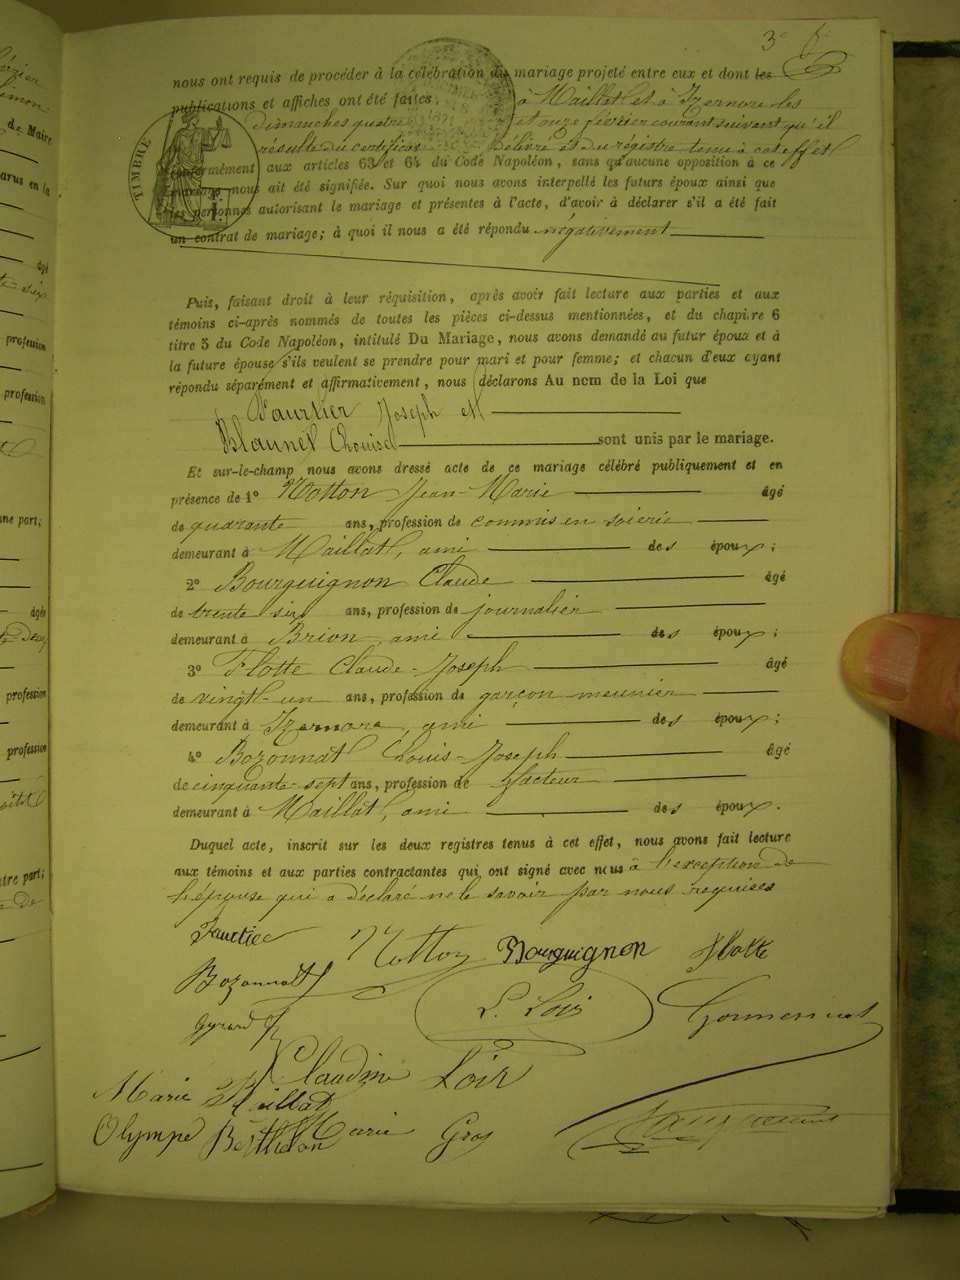 3e
nous ont requis de procéder à la célébration du mariage projeté entre eux et dont les
publications et affiches ont été faites à Maillat et à Izernore les
dimanches quatre et onze février courant suivant qu'il
résulte du certificat délivré et du régistre tenu à cet effet
TIMBRE
conformément aux articles 63 et 64 du Code Napoléon, sans qu'aucune opposition à ce
mariage nous ait été signifiée. Sur quoi nous avons interpellé les futurs époux ainsi que
les personnes autorisant le mariage et présentes à l'acte, d'avoir à déclarer s'il a été fait
un contrat de mariage; à quoi il nous a été répondu négativement
Puis, faisant droit à leur réquisition, après avoir fait lecture aux parties et aux
témoins ci-après nommés de toutes les pièces ci-dessus mentionnées, et du chapitre 6
titre 5 du Code Napoléon, intitulé Du Mariage, nous avons demandé au futur époux et à
la future épouse s'ils veulent se prendre pour mari et pour femme; et chacun d'eux ayant
répondu séparément et affirmativement, nous déclarons Au nom de la Loi que
Faurtier Joseph et
Blaunet Louise sont unis par le mariage.
Et sur-le-champ nous avons dressé acte de ce mariage célébré publiquement et en
présence de 1° Notton Jean-Marie âgé
de quarante ans, profession de commis en soierie
demeurant à Maillat, ami des époux;
2° Bourguignon Claude âgé
de trente six ans, profession de journalier
demeurant à Brion, ami des époux;
3° Flotte Claude-Joseph âgé
de vingt-un ans, profession de garçon meunier
demeurant à Izernore, ami des époux;
4° Bozonnat Louis-Joseph âgé
de cinquante-sept ans, profession de facteur
demeurant à Maillat, ami des époux.
Duquel acte, inscrit sur les deux registres tenus à cet effet, nous avons fait lecture
aux témoins et aux parties contractantes qui ont signé avec nous à l'exception de
l'épouse qui a déclaré ne le savoir par nous requises
Faurtier Notton Bourguignon Flotte
Bozonnat L. Loir
Gyrard
Claudine Loir
Marie Maillat
Olympe Berthelon Marie Gros